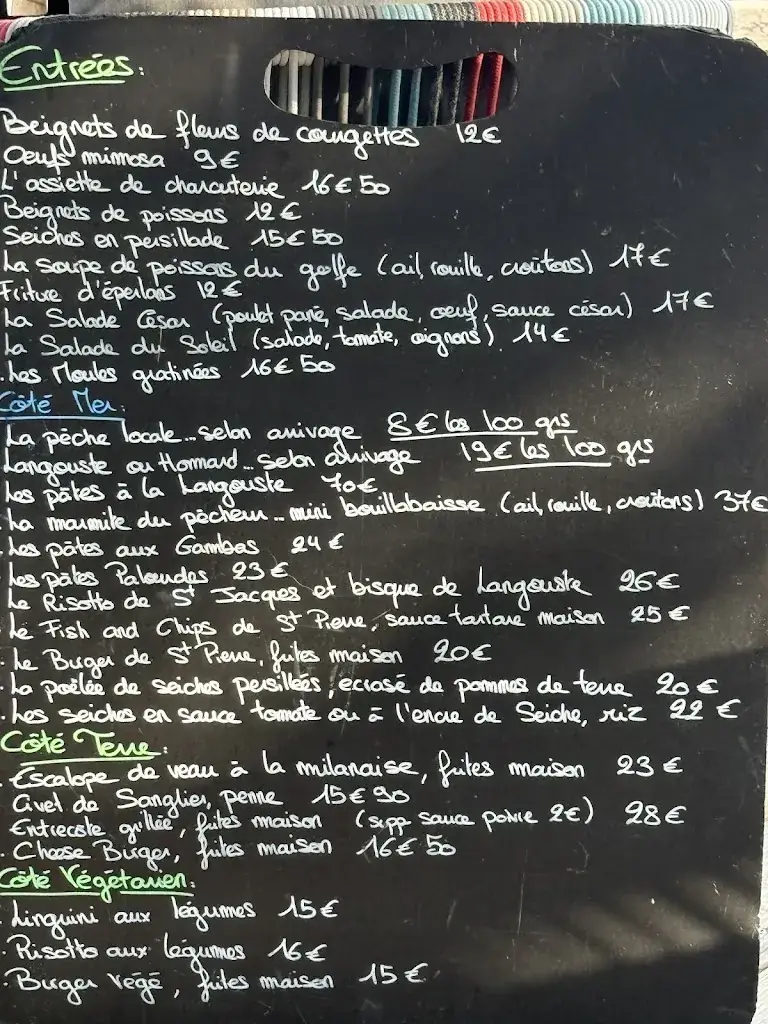 Entrées:
Beignets de fleurs de courgettes 12€
Oeufs mimosa 9€
L'assiette de charcuterie 16€50
Beignets de poissons 12€
Seiches en persillade 15€50
La soupe de poissons du golfe (ail, rouille, croûtons) 17€
Friture d'éperlans 12€
La Salade César (poulet pané, salade, oeuf, sauce césar) 17€
La Salade du Soleil (salade, tomate, oignons) 14€
. Les Moules gratinées 16€50
Côté Mer:
La pêche locale... selon arrivage 8€ les 100 grs
Langouste ou Homard... selon arrivage 19€ les 100 grs
Les pâtes à la Langouste 70€
La marmite du pêcheur... mini bouillabaisse (ail, rouille, croûtons) 37€
Les pâtes aux Gambas 24€
Les pâtes Palourdes 23€
Le Risotto de St Jacques et bisque de Langouste 26€
Le Fish and Chips de St Pierre, sauce tartare maison 25€
. Le Burger de St Pierre, frites maison 20€
. La poêlée de seiches persillées, ecrasé de pommes de terre 20€
. Les seiches en sauce tomate ou à l'encre de Seiche, riz 22€
Côté Terre:
. Escalope de veau à la milanaise, frites maison 23€
Civet de Sanglier, penne 15€90
Entrecote grillée, frites maison (supp sauce poivre 2€) 28€
. Cheese Burger, frites maison 16€50
Côté Végétarien:
. Linguini aux légumes 15€
. Risotto aux légumes 16€
. Burger végé, frites maison 15€